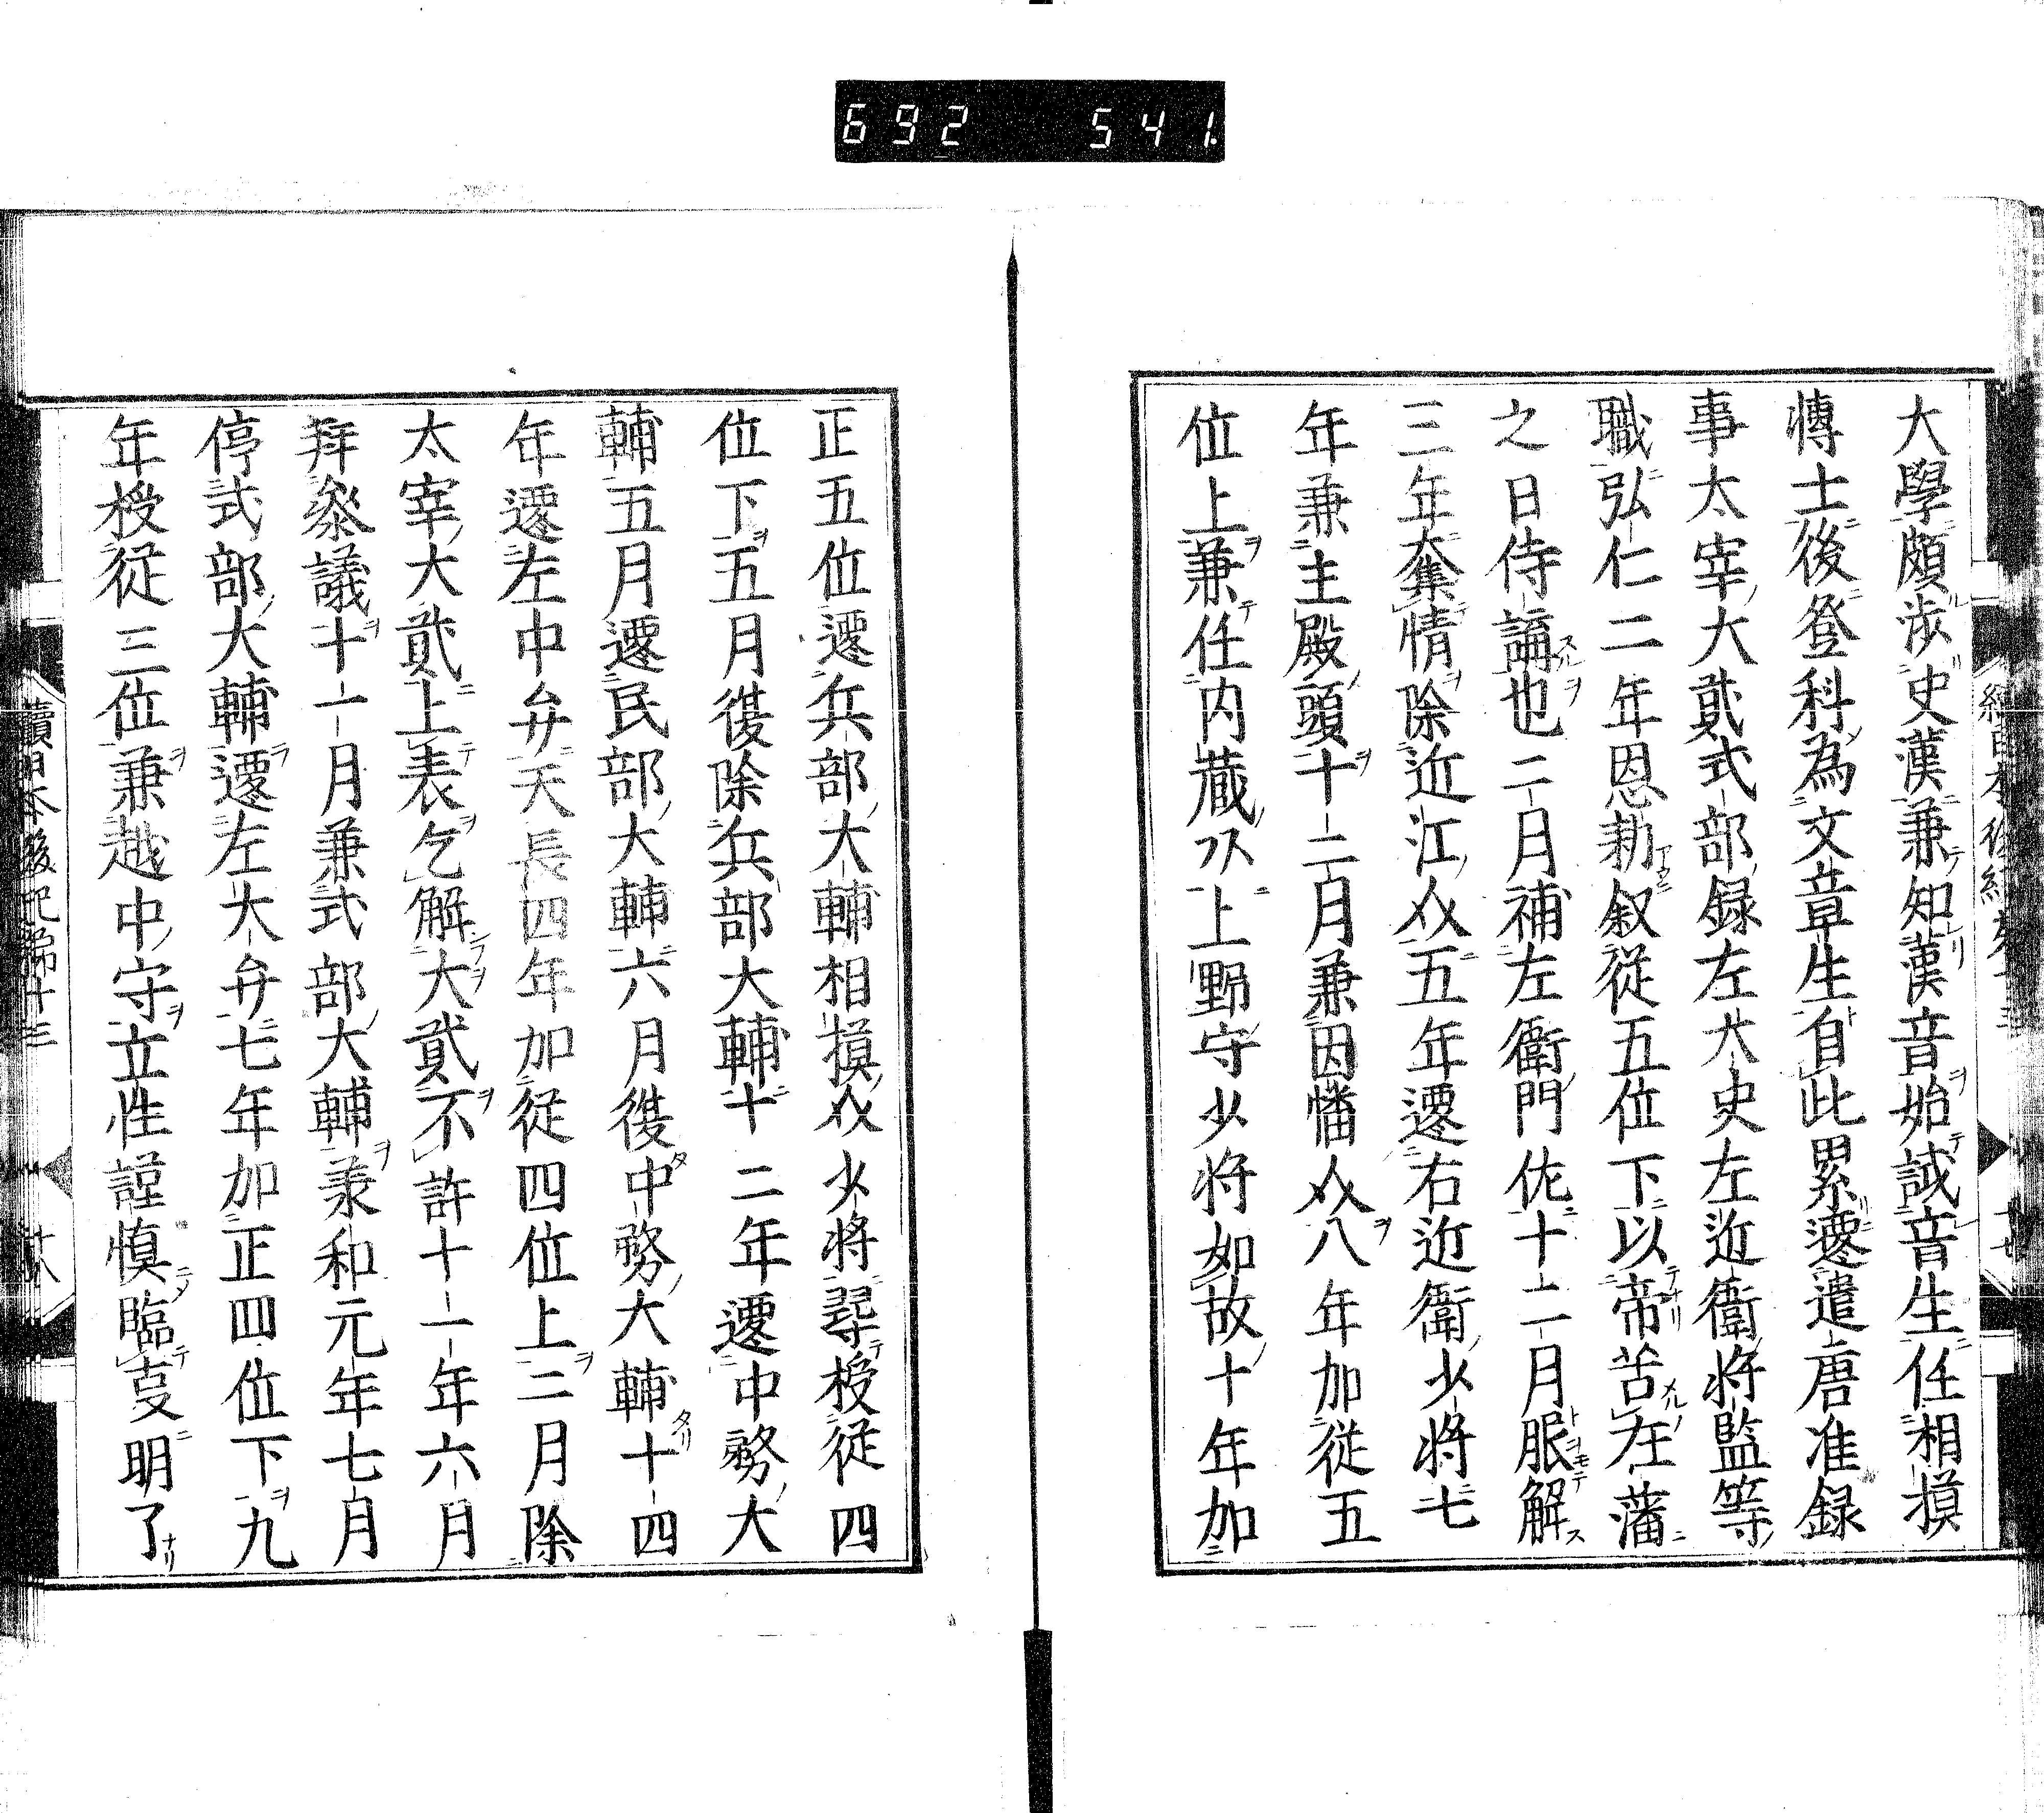 692 541
大學頗渉史漢兼知漢音始試音生任相摸
博士後登科為文章生自此累遷遣唐准録
事太宰大貳式部録左大史左近衛将監等
職弘仁二年恩勅叙従五位下以帝苦在藩
之日侍論也二月補左衛門佐十二月服解
三年奪情除近江介五年遷右近衛少将七
年兼主殿頭十二月兼因幡介八年加従五
位上兼任内蔵以上野守少将如故十年加
正五位遷兵部大輔相摸介少将尋授従四
位下五月復除兵部大輔十二年遷中務大
輔五月遷民部大輔六月復中務大輔十四
年遷左中弁天長四年加従四位上二月除
太宰大貳上表乞解大貳不許十一年六月
拜叅議十一月兼式部大輔承和元年七月
停式部大輔遷左大弁七年加正四位下九
年授従三位兼越中守立性謹慎臨㕝明了
續日本後紀第十三 十八